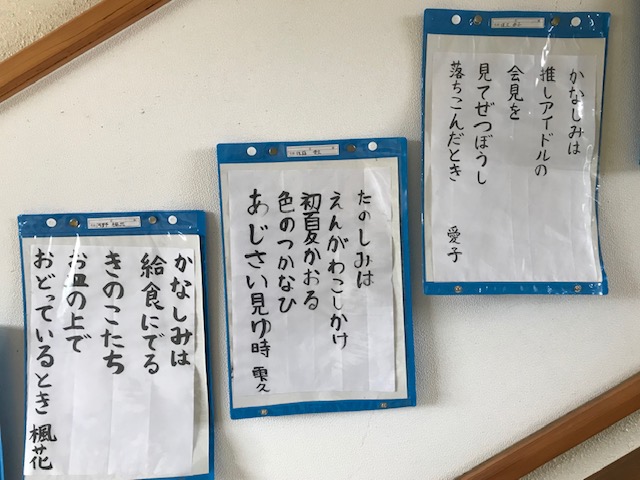 かなしみは
推しアイドルの
会見を
見てぜつぼうし
落ちこんだとき
愛子
たのしみは
えんがわこしかけ
初夏かおる
色のつかなひ
あじさい見ゆ時
かなしみは
給食にでる
きのこたち
お皿の上で
おどっているとき
楓花